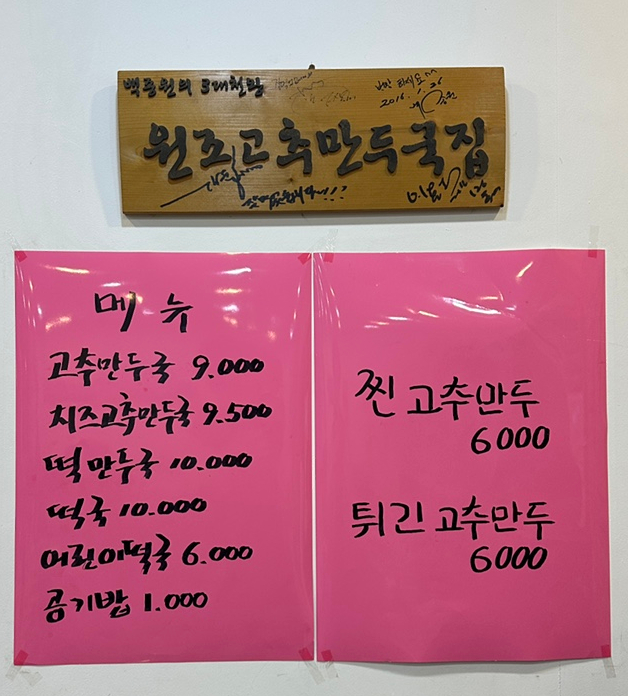 백종원의 3대천왕
2016. 1. 26
원조고추만두국집
메뉴
고추만두국 9.000
치즈고추만두국 9.500
떡만두국 10.000
떡국 10.000
어린이떡국 6.000
공기밥 1.000
찐고추만두
6000
튀긴고추만두
6000